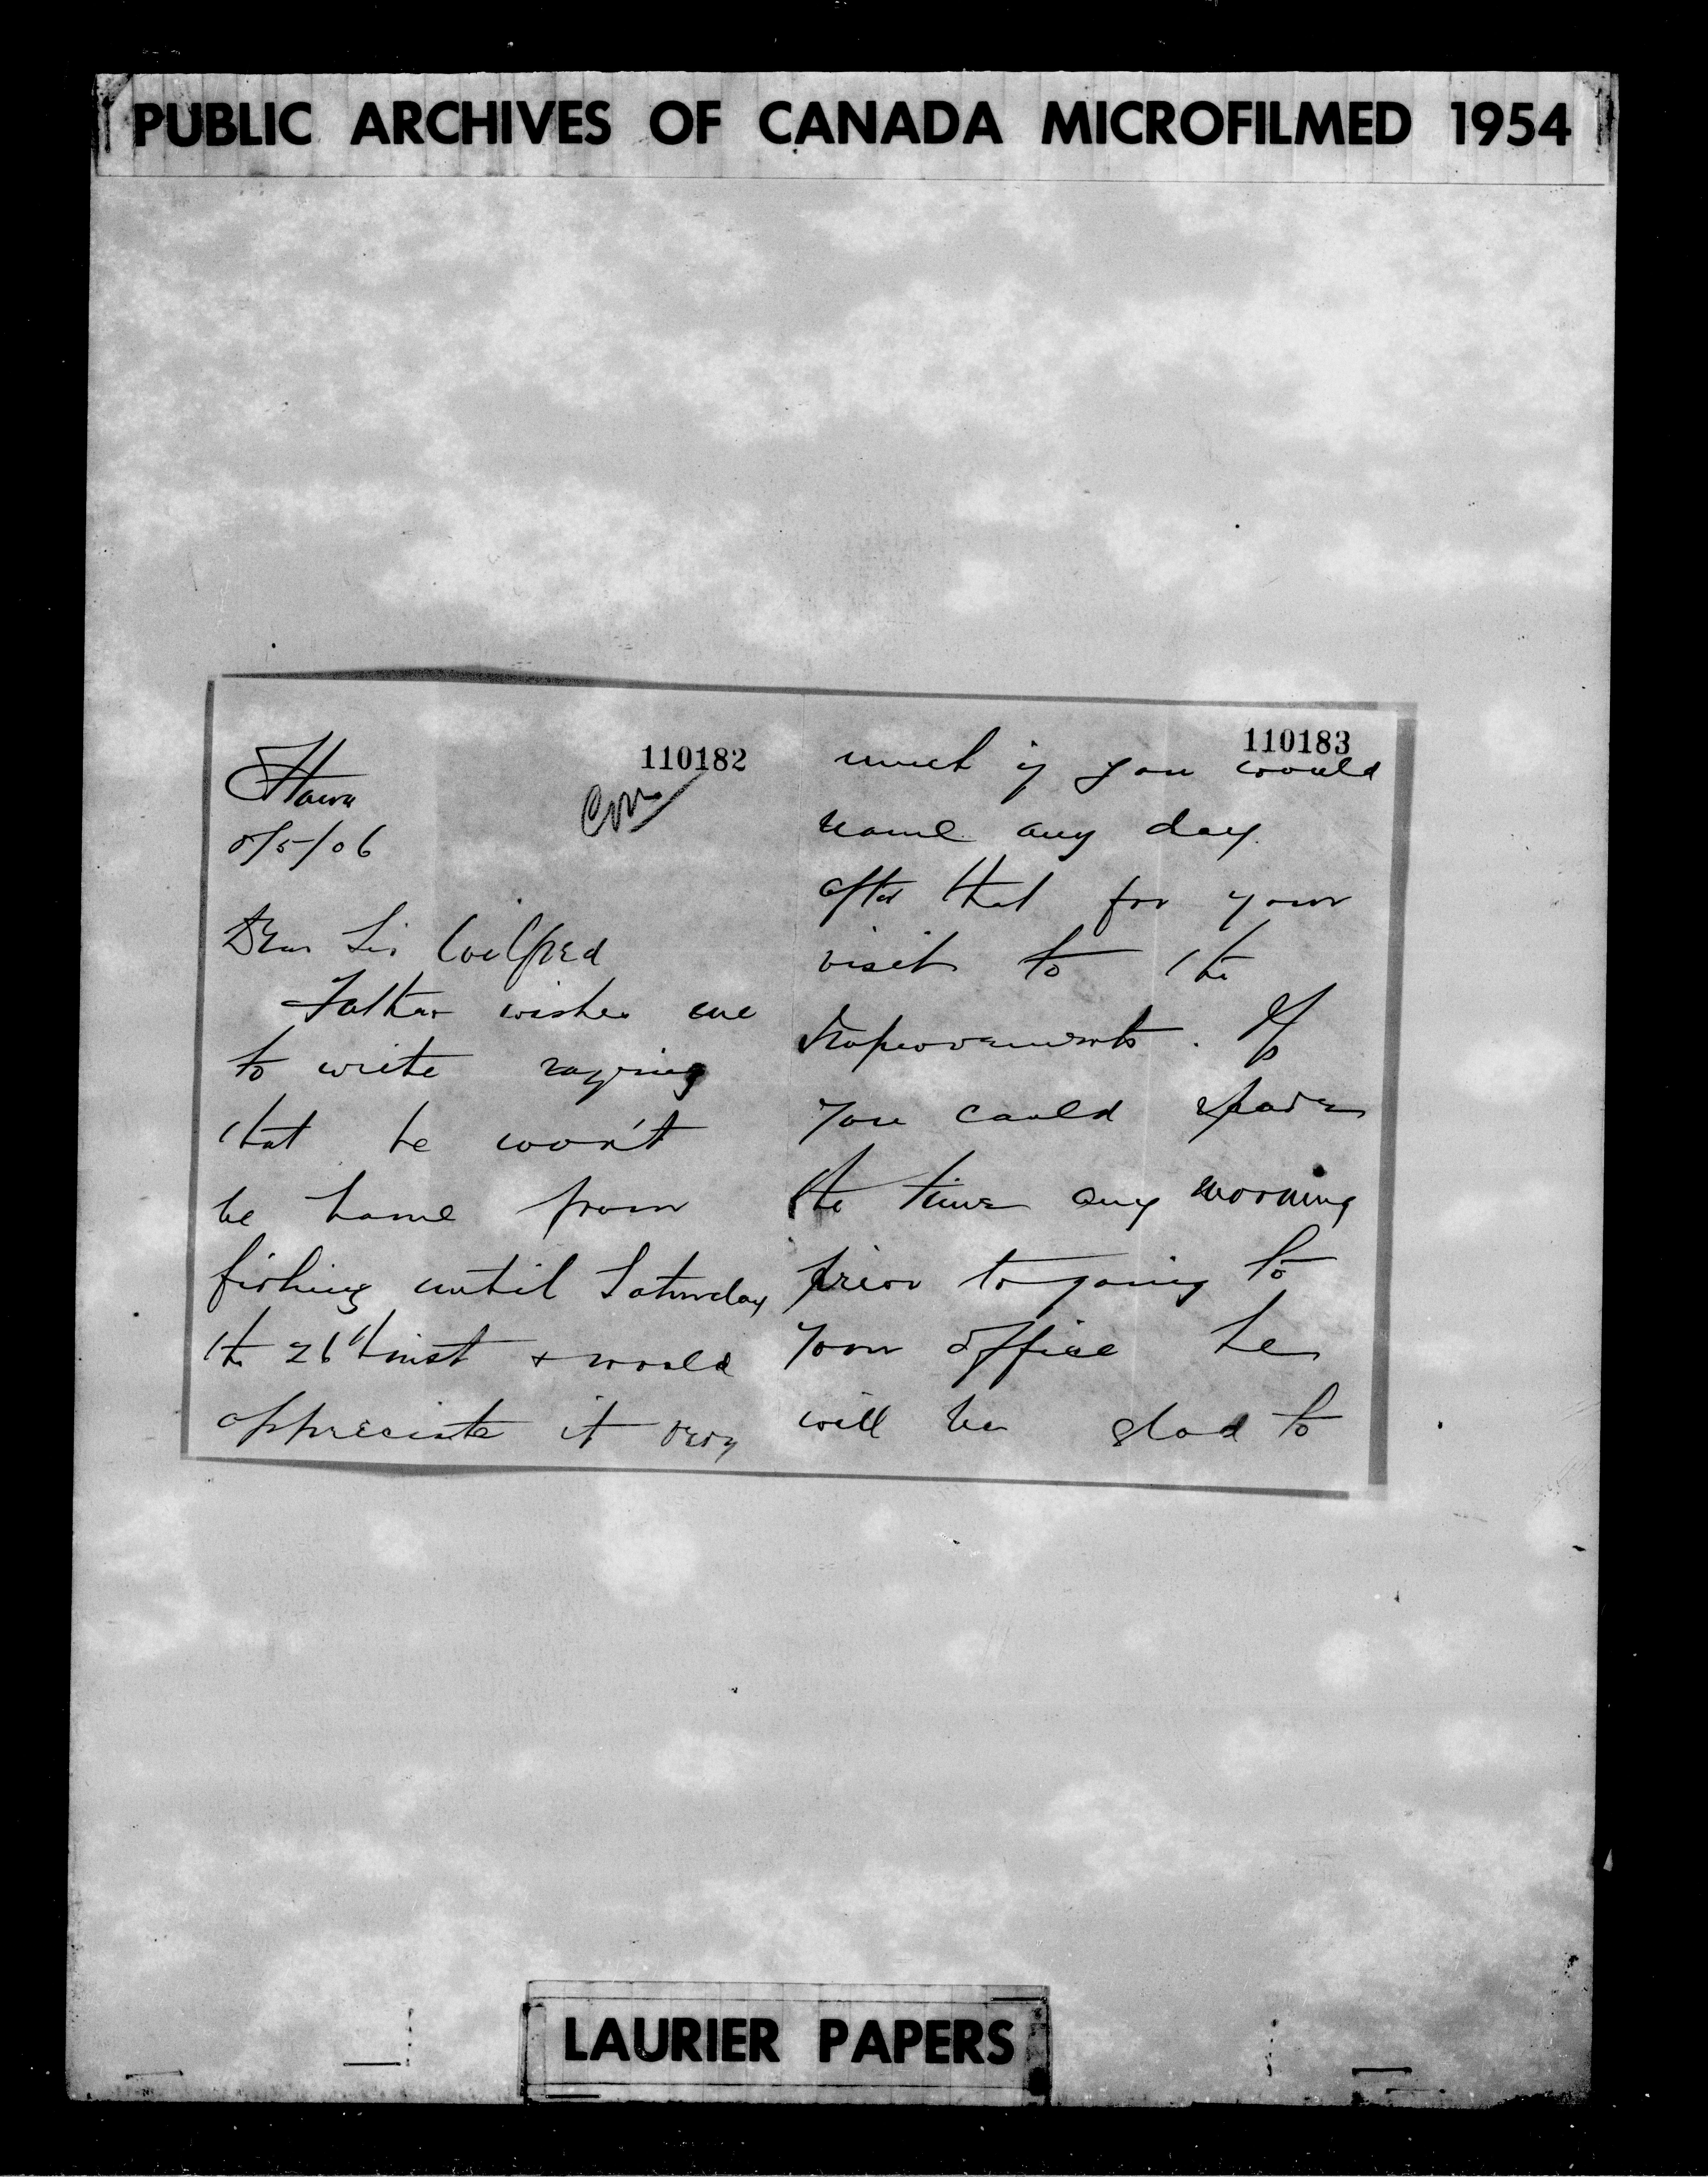 PUBLIC ARCHIVES OF CANADA MICROFILMED 1954
110182
Ottawa
5/06
Dear Sir Wilfred
Father wishes me
to write saying
that he won't
be home from
fishing until Saturday
the 26th inst & would
appreciate it very
110183
much if you would
name any day
after that for your
visit to the
Improvements. If
you could spare
the time any morning
prior to going to
your office he
will be glad to
LAURIER PAPERS